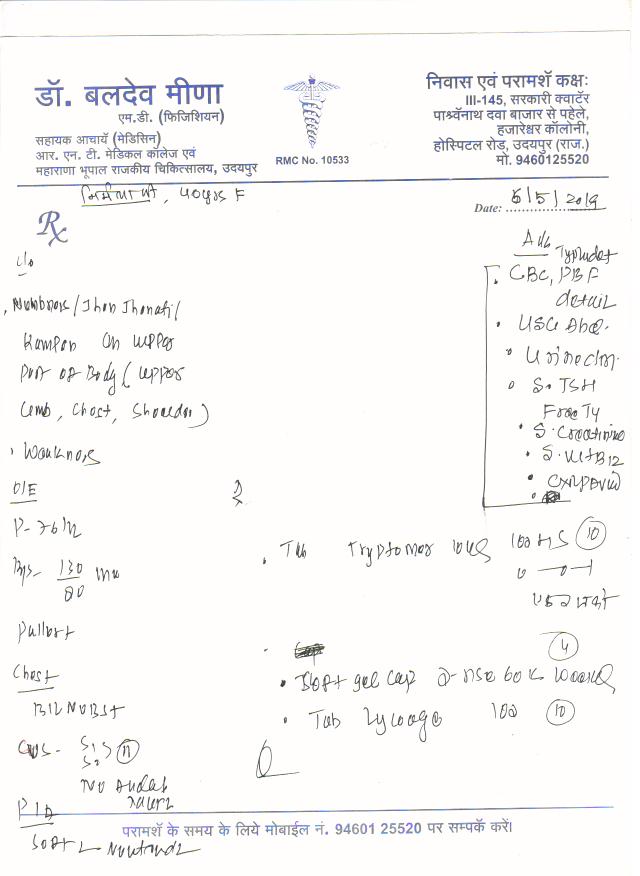 डॉ. बलदेव मीणा
एम.डी. (फिजिशियन)
सहायक आचार्य (मेडिसिन)
आर. एन. टी. मेडिकल कॉलेज एवं
महाराणा भूपाल राजकीय चिकित्सालय, उदयपुर
RMC No. 10533
निवास एवं परामर्श कक्षः
III-145, सरकारी क्वार्टर
पार्श्वनाथ दवा बाजार से पहेले,
हजारेश्वर कॉलोनी,
होस्पिटल रोड़, उदयपुर (राज.)
मो. 9460125520
F
Date: 6/5/2019
Rx
c/o
Adv
CBC, PBF
detail
Numbness/Jhan Jhanati/
on upper
USG Abd.
Part of Body (upper
limb, Chest, Shoulder)
S. TSH
Free T4
S. Creatinine
Weakness
S. Vit B12
CXR PA view
O/E
P-76/m
Tab Tryptomer 10mg 10
BP- 130/80 mm
Pallor+
4
Chest
Soft gel cap D-rise 60 K weekly
B/L NVBS+
Tab 10
CVS- S1 S2 n
No
P/A
परामर्श के समय के लिये मोबाईल नं. 94601 25520 पर सम्पर्क करें।
Soft